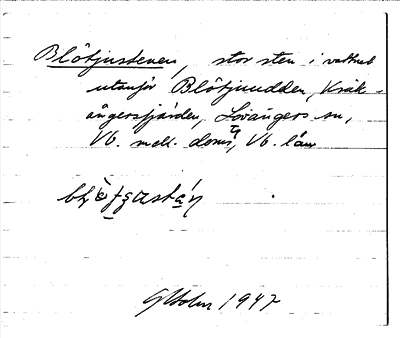 Blötjustenen, stor sten i vattnet
utanför Blötjuudden, Kråk-
ångersfjärden, Lövångers sn,
Vb. mell. doms, Vb. län
1947